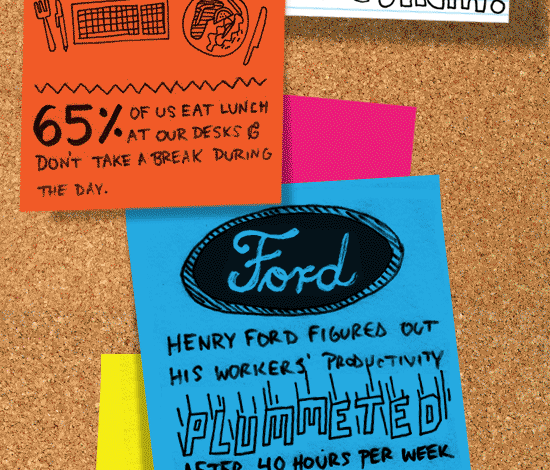 65% OF US EAT LUNCH
AT OUR DESKS &
DON'T TAKE A BREAK DURING
THE DAY.
Ford
HENRY FORD FIGURED OUT
HIS WORKERS' PRODUCTIVITY
PLUMMETED
AFTER 40 HOURS PER WEEK